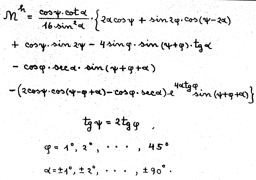 𝔐ʰ = cosψ.cotα / 16 sin²α · {2α cosψ + sin2φ · cos(ψ-2α)
+ cosψ. sin 2ψ - 4 sinφ · sin(ψ+φ). tgα
- cosφ · secα · sin(ψ+φ+α)
-(2cosψ.cos(ψ-φ+α)-cosφ.secα) e^4αtgφ sin(ψ+φ+α)}
tgψ = 2tgφ ,
φ = 1°, 2°, · · · , 45°
α = ±1°, ±2°, · · · , ±90°.